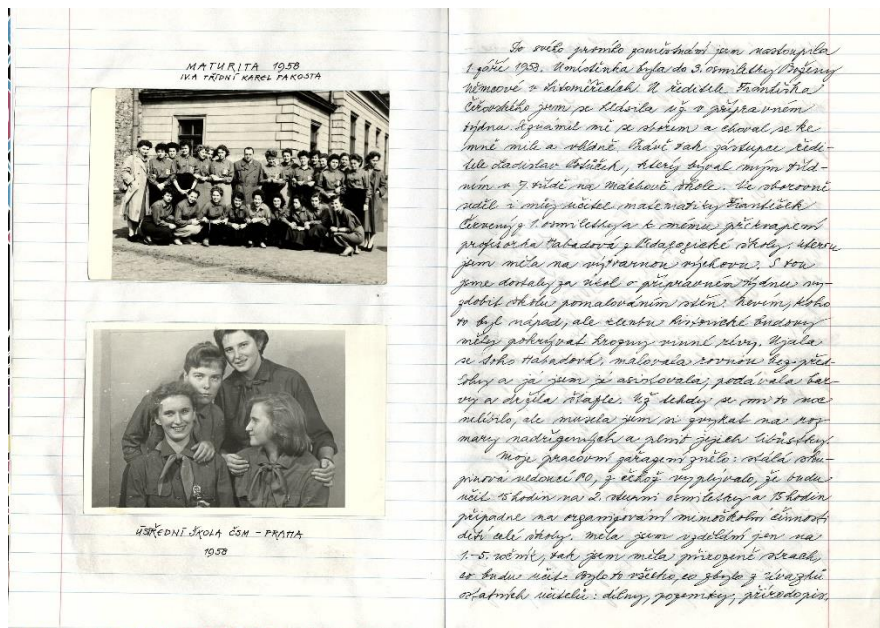 MATURITA 1958
IV.A TŘÍDNÍ KAREL PAKOSTA
ÚSTŘEDNÍ ŠKOLA ČSM – PRAHA
1958
Do svého prvního zaměstnání jsem nastoupila
1. září 1958. Umístěnka byla do 3. osmiletky Boženy
Němcové v Litoměřicích. U ředitele Františka
jsem se hlásila už v přípravném
týdnu. Seznámil mě se sborem a choval se ke
mně mile a vlídně. Právě tak zástupce ředi-
tele Ladislav который býval mým tříd-
ním v 7. třídě na Máchově škole. Ve sborovně
seděl i můj učitel matematiky František
Červený z 1. osmiletky a k mému překvapení
profesorka Habadová z Pedagogické školy, kterou
jsem měla na výtvarnou výchovu. S tou
jsme dostaly za úkol v přípravném týdnu vy-
zdobit školu pomalováním stěn. Nevím, koho
to byl nápad, ale klenbu historické budovy
měly pokrývat hrozny vinné révy. Ujala
se toho Habadová, malovala rovnou bez před-
lohy a já jsem jí asistovala, podávala bar-
vy a držela štafle. Už tehdy se mi to moc
nelíbilo, ale musela jsem si zvykat na roz-
mary nadřízených a plnit jejich libůstky.
Moje pracovní zařazení znělo: stálá sku-
pinová vedoucí PO, z čehož vyplývalo, že budu
učit 15 hodin na 2. stupni osmiletky a 15 hodin
připadne na organizování mimoškolní činnosti
dětí celé školy. Měla jsem vzdělání jen na
1.-5. ročník, tak jsem měla přirozeně strach,
co budu učit. Bylo to všecko, co zbylo z úvazků
ostatních učitelů: dílny, pozemky, přírodopis,